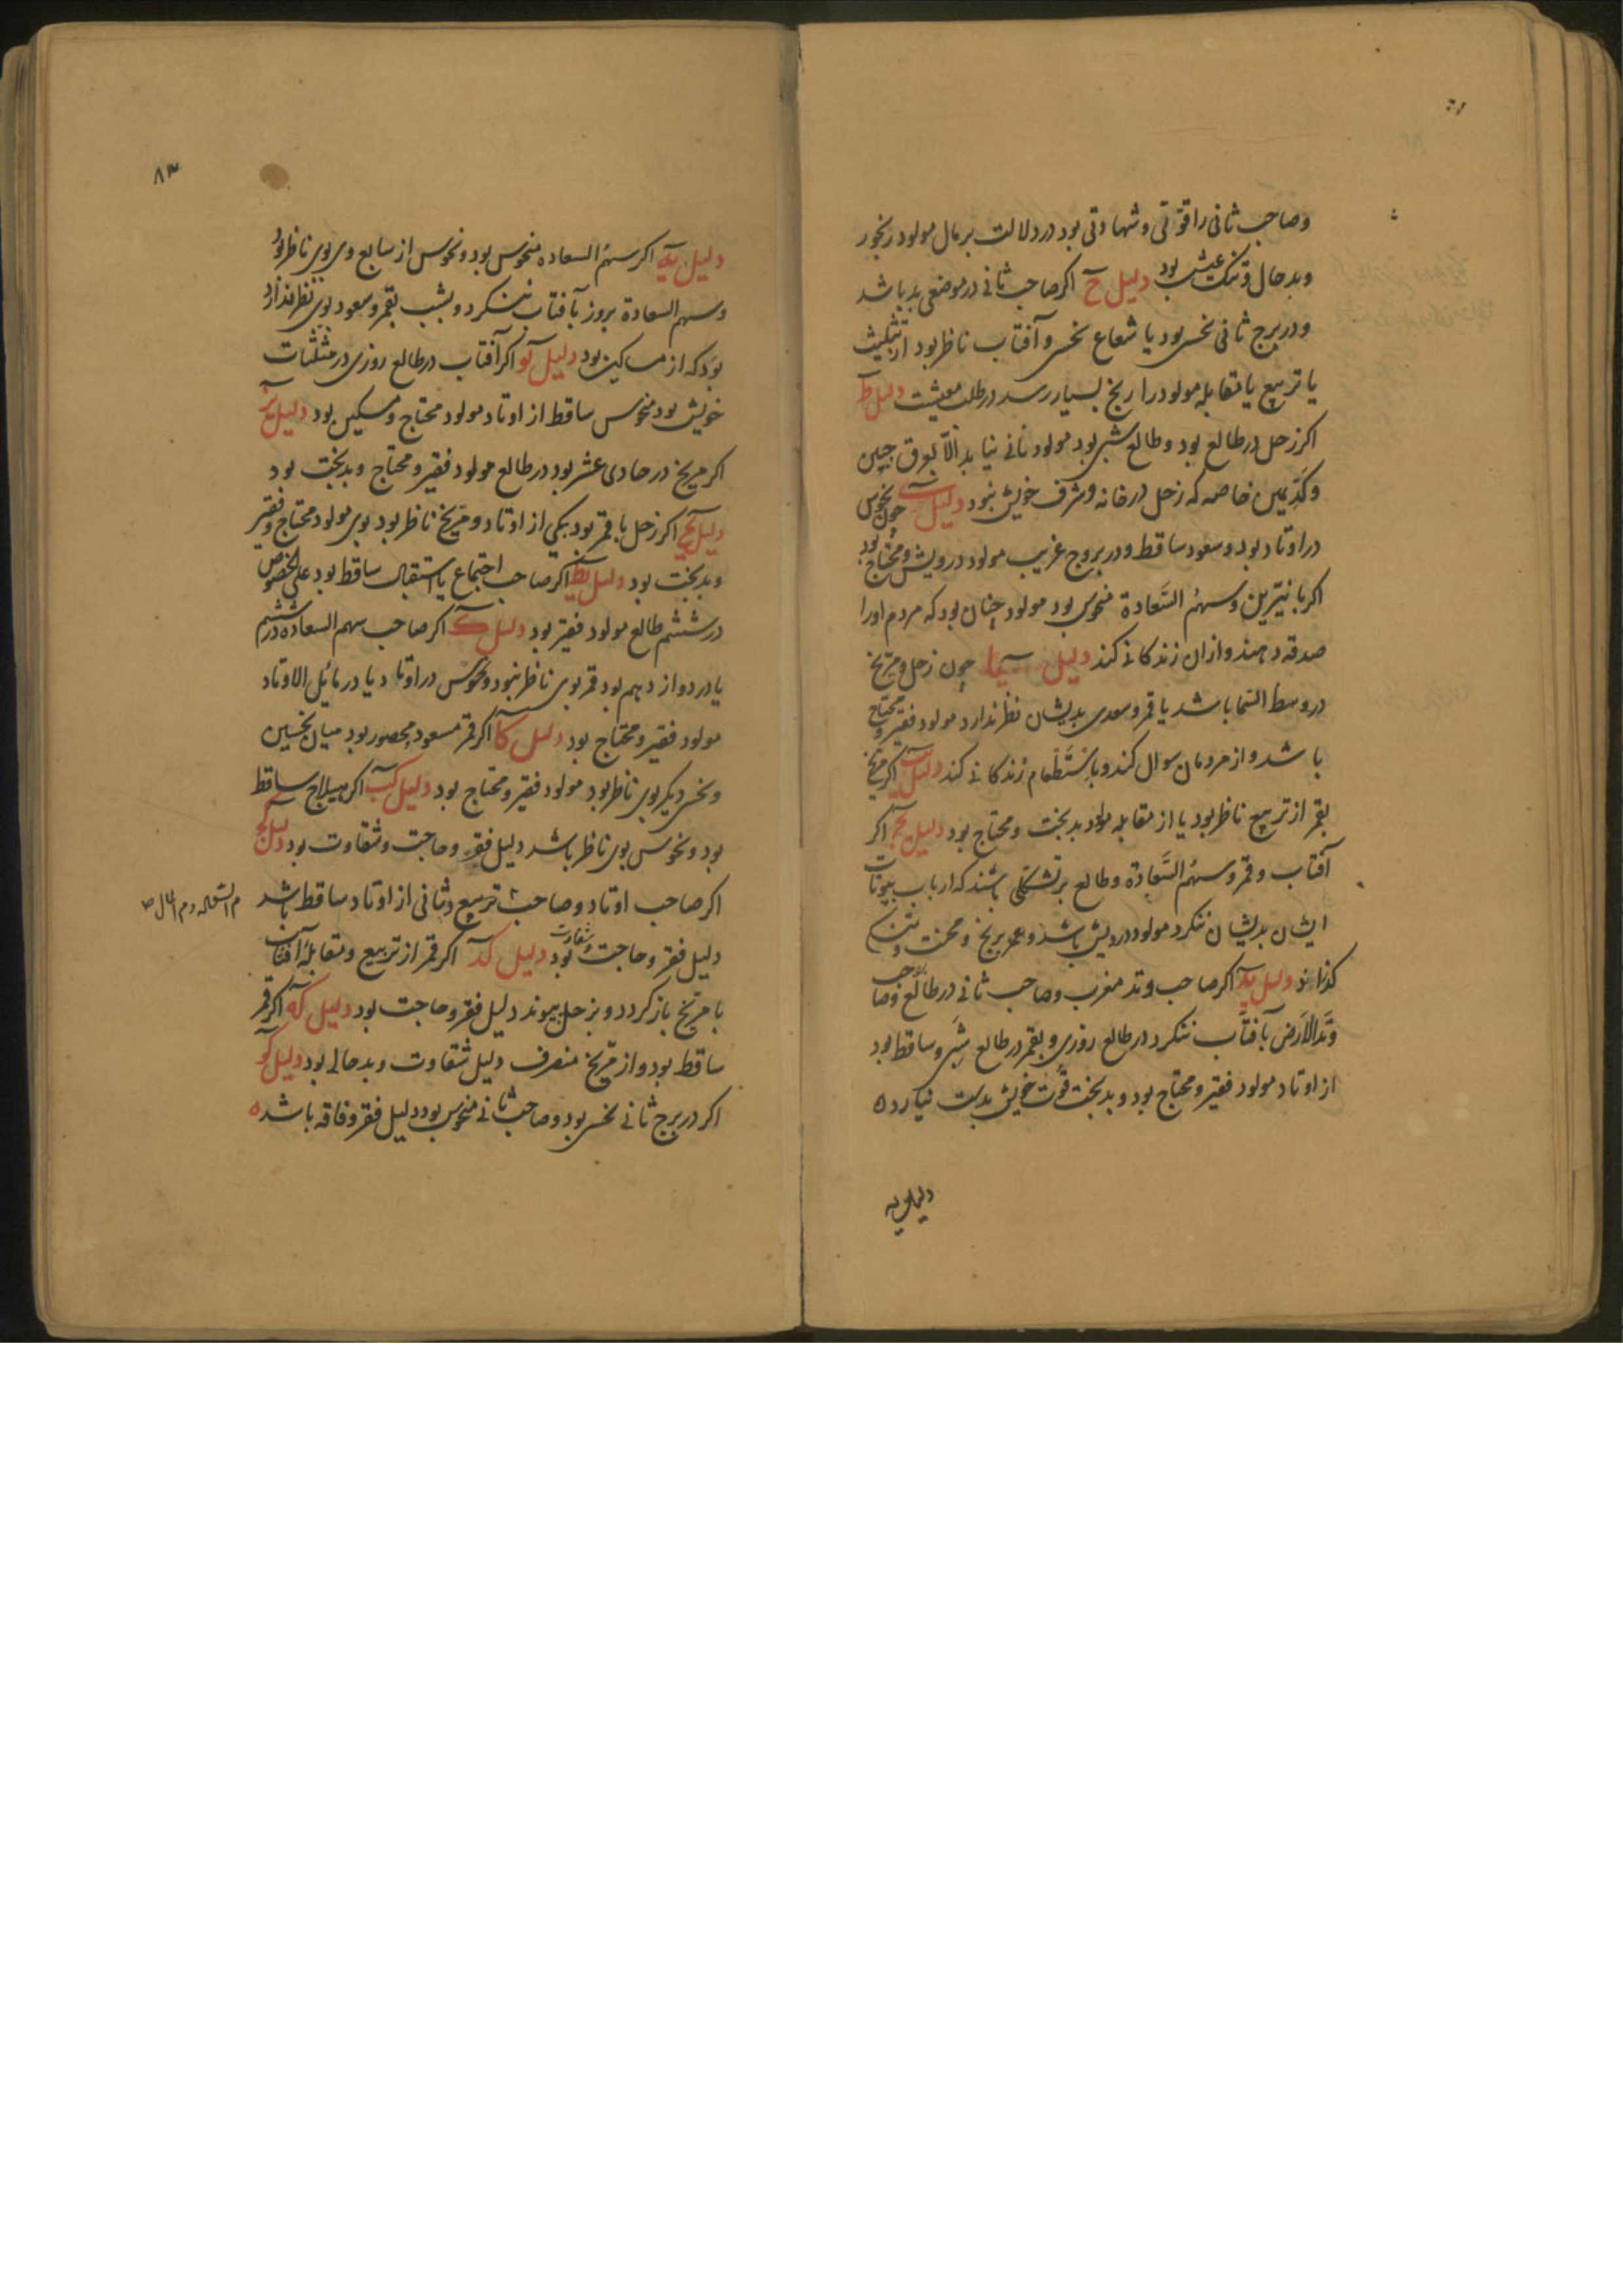 وصاحب ثانی را قوتی وشهادتی بود در دلالت بر مال مولود رنجور
وبد حال وتنک عیش بود دلیل ح اکر صاحب ثانی در موضعی بد باشد
ودر برج ثانی نحسی بود یا شعاع نحس وآفتاب ناظر بود از تثلیث
یا تربیع یا مقابله مولود را رنج بسیار رسد در طلب معیشت دلیل ط
اکر زحل در طالع بود وطالع شبی بود مولود نانی نیابد الّا بعرق جبین
وکدّ یمین خاصه که زحل در خانه وشرف خویش نبود دلیل ی چون نحوس
در اوتاد بود وسعود ساقط ودر بروج غریب مولود درویش ومحتاج بود
اکر با نیّرین وسهم السّعادة منحوس بود مولود چنان بود که مردم اورا
صدقه دهند واز ان زندکانی کند دلیل یا چون زحل ومریخ
در وسط السّما باشد یا قمر وسعدی بدیشان نظر ندارد مولود فقیر ومحتاج
باشد واز مردمان سوال کند وباستطعام زندکانی کند دلیل یب اکر مریخ
بقمر از تربیع ناظر بود یا از مقابله مولود بدبخت ومحتاج بود دلیل یج اکر
آفتاب وقمر وسهم السّعادة وطالع بر تشکلی باشند که ارباب بیوتات
ایشان بدیشان ننکرد مولود درویش باشد وعمر برنج ومحنت و
کذراند دلیل ید اکر صاحب وتد مغرب وصاحب ثانی در طالع وصاحب
وتد الارض بآفتاب ننکرد در طالع روزی وبقمر در طالع شبی وساقط بود
از اوتاد مولود فقیر ومحتاج بود وبدبخت قوت خویش بدست نیارد ه
دلیل یه
٨٣
دلیل یه اکر سهم السعاده منحوس بود ونحوس از سابع وی بوی ناظر بود
وسهم السعادة بروز بآفتاب ننکرد وبشب بقمر وسعود بوی نظر ندارد
بود که از مساکین بود دلیل یو اکر آفتاب در طالع روزی در مثلثات
خویش بود منحوس ساقط از اوتاد مولود محتاج ومسکین بود دلیل یز
اکر مریخ در حادی عشر بود در طالع مولود فقیر ومحتاج وبدبخت بود
دلیل یح اکر زحل با قمر بود بیکی از اوتاد ومریخ ناظر بود بوی مولود محتاج وفقیر
وبدبخت بود دلیل یط اکر صاحب اجتماع یا استقبال ساقط بود علی الخصوص
در ششم طالع مولود فقیر بود دلیل ک اکر صاحب سهم السعاده در ششم
یا در دوازدهم بود قمر بوی ناظر نبود ونحوس در اوتاد یا در مائل الاوتاد
مولود فقیر ومحتاج بود دلیل کا اکر قمر مسعود محصور بود میان نحسین
ونحس دیکر بوی ناظر بود مولود فقیر ومحتاج بود دلیل کب اکر هیلاج ساقط
بود ونحوس بوی ناظر باشد دلیل فقر وحاجت وشقاوت بود دلیل کج
اکر صاحب اوتاد وصاحب تربیع وثانی از اوتاد ساقط باشد
دلیل فقر وحاجت وشقاوت بود دلیل کد اکر قمر از تربیع ومقابلهٔ آفتاب
با مریخ باز کردد وبزحل پیوندد دلیل فقر وحاجت بود دلیل که اکر قمر
ساقط بود واز مریخ منصرف دلیل شقاوت وبد حالی بود دلیل کو
اکر در برج ثانی نحسی بود وصاحب ثانی منحوس بود دلیل فقر وفاقه باشد ه